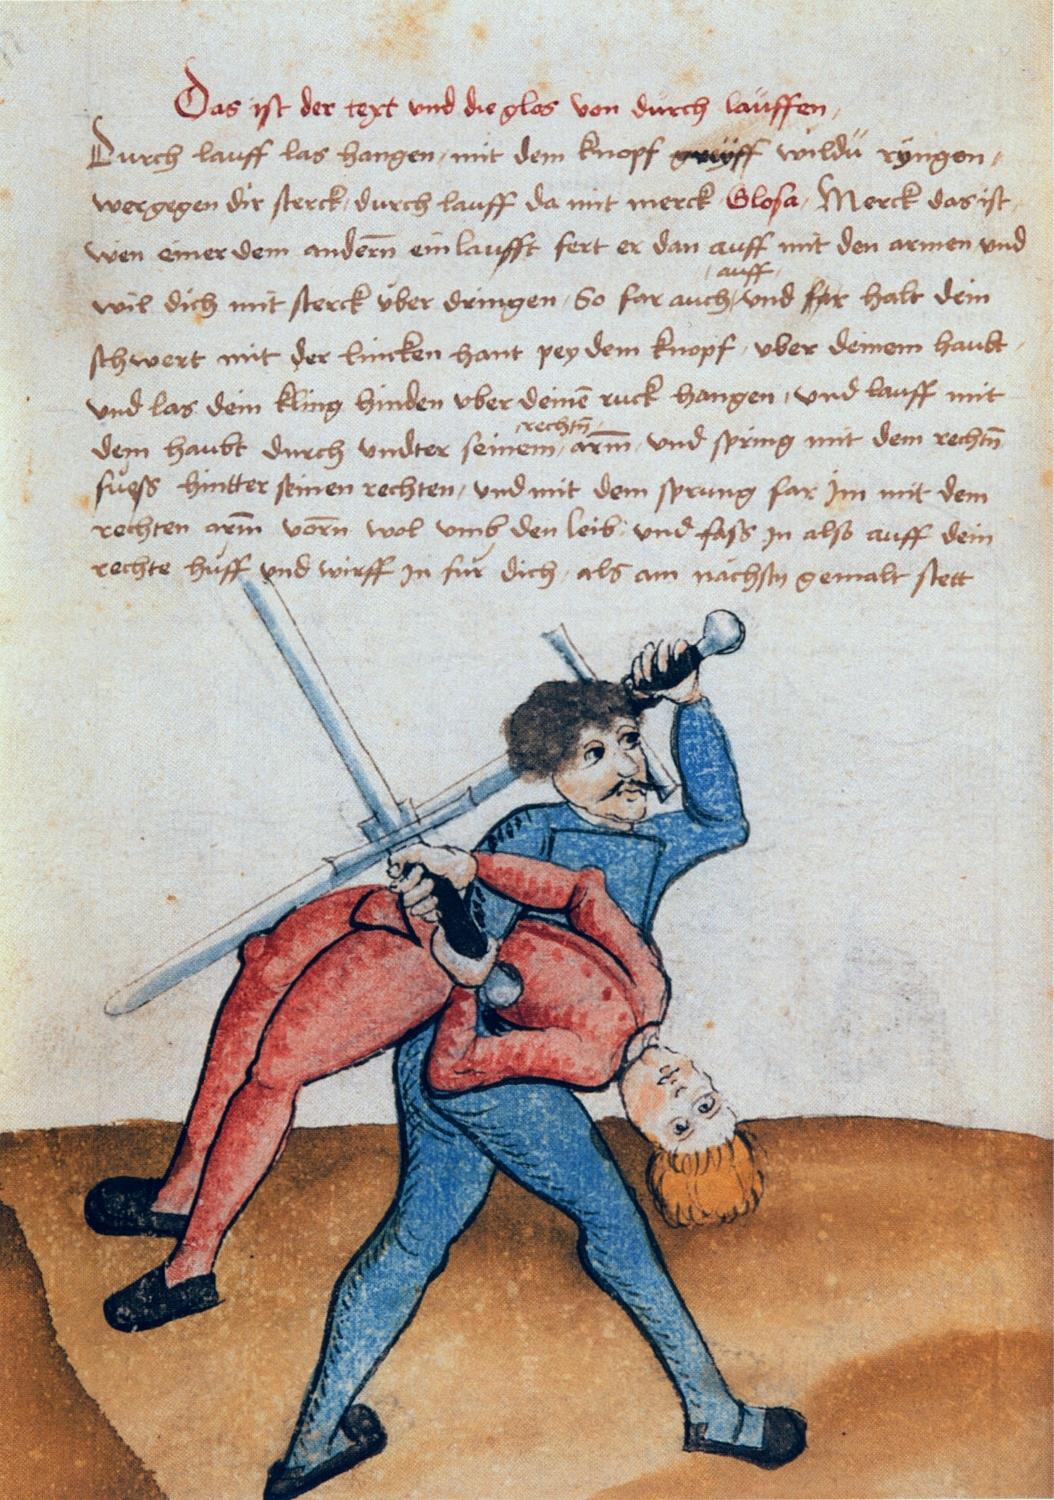 Das ist der text und die glos von durch lauffen /
Durch lauff las hangen / mit dem knopf greyff wildu ryngen /
wer gegen dir sterck / durch lauff da mit merck Glosa / Merck das ist /
wen einer dem andern̄ ein laufft fert er dan auff mit den armen und
/ auff /
wil dich mit sterck über dringen / So far auch / und far halt dein
schwert mit der lincken hant pey dem knopf / vber deinem haubt /
und las dein kling hinden vber deinē ruck hangen / und lauff mit
/ rechtn̄ /
dem haubt durch undter seinem / arm̄ / und spring mit dem rechtn̄
fuess hintter seinen rechten / und mit dem sprung far Im mit dem
rechten arm̄ vorn̄ wol umb den leib / und fass In also auff dein
rechte huff und wirff In fur dich / als am nachstn gemalt stett